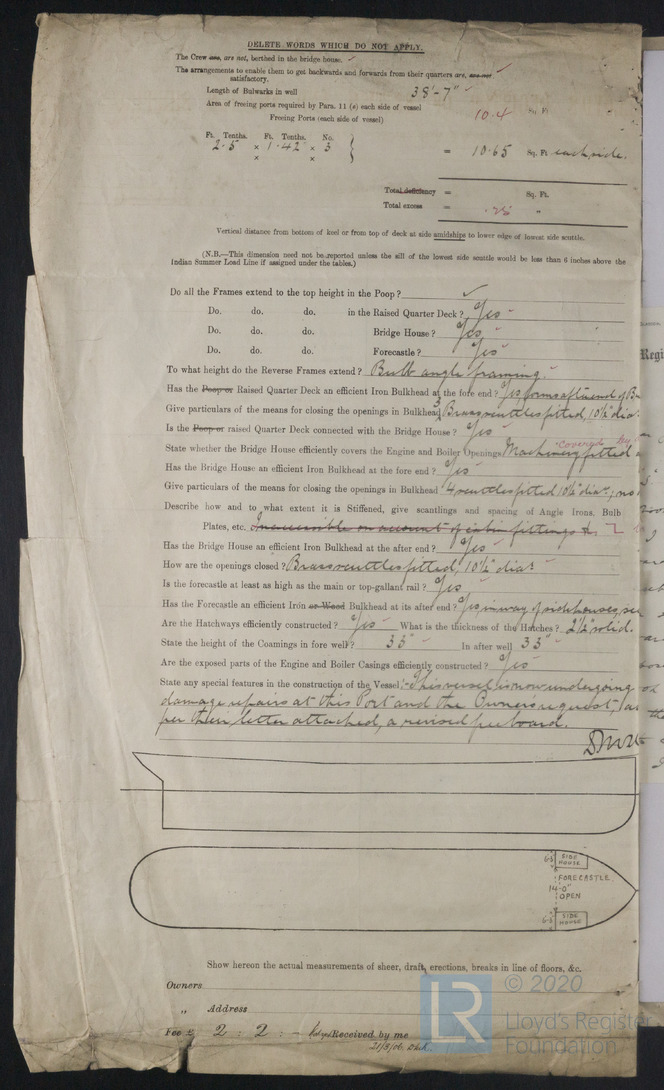 DELETE WORDS WHICH DO NOT APPLY.
The Crew are, are not, berthed in the bridge house. ✓
The arrangements to enable them to get backwards and forwards from their quarters are, are not
satisfactory.
Length of Bulwarks in well 38'-7"
Area of freeing ports required by Para. 11 (e) each side of vessel 10.4 Sq. Ft.
Freeing Ports (each side of vessel)
Ft. Tenths. Ft. Tenths. No.
2.5 × 1.42 × 3 = 10.65 Sq. Ft. each side.
× ×
Total deficiency = Sq. Ft.
Total excess = .25 "
Vertical distance from bottom of keel or from top of deck at side amidships to lower edge of lowest side scuttle.
(N.B.—This dimension need not be reported unless the sill of the lowest side scuttle would be less than 6 inches above the
Indian Summer Load Line if assigned under the tables.)
Do all the Frames extend to the top height in the Poop? ✓
Do. do. do. in the Raised Quarter Deck? Yes
Do. do. do. Bridge House? Yes
Do. do. do. Forecastle? Yes
To what height do the Reverse Frames extend? Bulb angle framing.
Has the Poop or Raised Quarter Deck an efficient Iron Bulkhead at the fore end? Yes forms aft end of
Give particulars of the means for closing the openings in Bulkhead 3 Brass scuttles fitted, 10½" dia.
Is the Poop or raised Quarter Deck connected with the Bridge House? Yes
State whether the Bridge House efficiently covers the Engine and Boiler Openings Machinery fitted
covered by
Has the Bridge House an efficient Iron Bulkhead at the fore end? Yes
Give particulars of the means for closing the openings in Bulkhead 4 scuttles fitted 10½" diar; no
Describe how and to what extent it is Stiffened, give scantlings and spacing of Angle Irons, Bulb
Plates, etc. Inaccessible on account of cabin fittings &.
Has the Bridge House an efficient Iron Bulkhead at the after end? Yes
How are the openings closed? Brass scuttles fitted, 10½" diar
Is the forecastle at least as high as the main or top-gallant rail? Yes
Has the Forecastle an efficient Iron or Wood Bulkhead at its after end? Yes in way of side houses, see
Are the Hatchways efficiently constructed? Yes What is the thickness of the Hatches? 2½" solid.
State the height of the Coamings in fore well? 33" In after well 33"
Are the exposed parts of the Engine and Boiler Casings efficiently constructed? Yes
State any special features in the construction of the Vessel:- This vessel is now undergoing
damage repairs at this Port and the Owners request, (as
per their letter attached, a revised freeboard.
6'3" SIDE
HOUSE
FORECASTLE
14'-0"
OPEN
6'3" SIDE
HOUSE
Show hereon the actual measurements of sheer, draft, erections, breaks in line of floors, &c.
Owners
" Address
Fee £ 2 : 2 : - Received by me
21/5/06
LR
© 2020
Lloyd's Register
Foundation